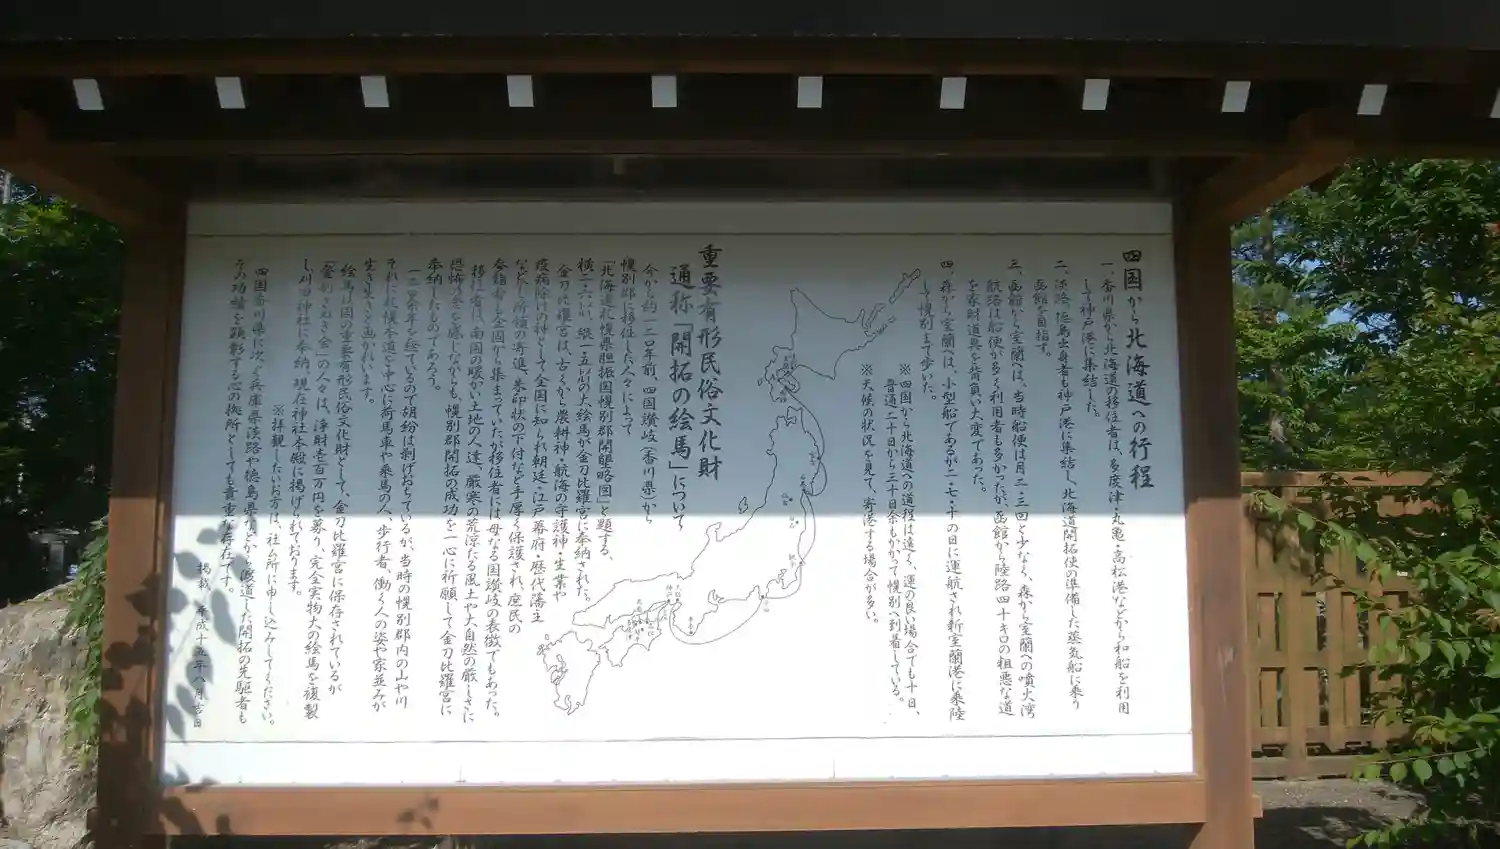 四国から北海道への行程
一、香川県から北海道の移住者は、多度津・丸亀・高松港などから和船を利用
して神戸港に集結した。
二、淡路、徳島出身者も神戸港に集結し、北海道開拓使の準備した蒸気船に乗り
函館を目指す。
三、函館から室蘭へは、当時船便は月二・三回と少なく、森から室蘭への噴火湾
航路は船便が多く利用者も多かったが、函館から陸路四十キロの粗悪な道
を家財道具を背負い大変であった。
四、森から室蘭へは、小型船であるが一・七・十の日に運航され新室蘭港に乗陸
して幌別まで歩いた。
※四国から北海道への道程は遠く、運の良い場合でも十日、
普通二十日から三十日余もかかって幌別へ到着している。
※天候の状況を見て、寄港する場合が多い。
重要有形民俗文化財
通称「開拓の絵馬」について
今から約一二〇年前、四国讃岐(香川県)から
幌別郡に移住した人々によって
「北海道札幌県胆振国幌別郡開墾略図」と題する、
横二・六，縦一・五の大絵馬が金刀比羅宮に奉納された。
金刀比羅宮は、古くから農耕神・航海の守護神・生業や
疫病除けの神として全国に知られ朝廷・江戸幕府・歴代藩主
などから所領の寄進、朱印状の下付など手厚く保護され、庶民の
参詣者も全国から集まっていたが移住者には母なる国讃岐の表徴でもあった。
移住者は、南国の暖かい土地の人達、厳寒の荒涼たる風土や大自然の厳しさに
恐怖心を感じながらも、幌別郡開拓の成功を一心に祈願して金刀比羅宮に
奉納したものであろう。
一二〇余年を経ているので胡粉は剥げおちているが、当時の幌別郡内の山や川
それに札幌本道を中心に荷馬車や乗馬の人、歩行者、働く人の姿や家並みが
生き生きと画かれています。
絵馬は国の重要有形民俗文化財として、金刀比羅宮に保存されているが
「登別さぬき会」の人々は、浄財壱百万円を募り、完全実物大の絵馬を複製
し刈田神社に奉納、現在神社本殿に掲げられております。
※拝観したいお方は、社ム所に申し込みしてください。
四国香川県に次ぐ兵庫県淡路や徳島県などから渡道した開拓の先駆者も
その功績を顕彰する心の拠所としても貴重な存在です。
掲載 平成十五年八月吉日